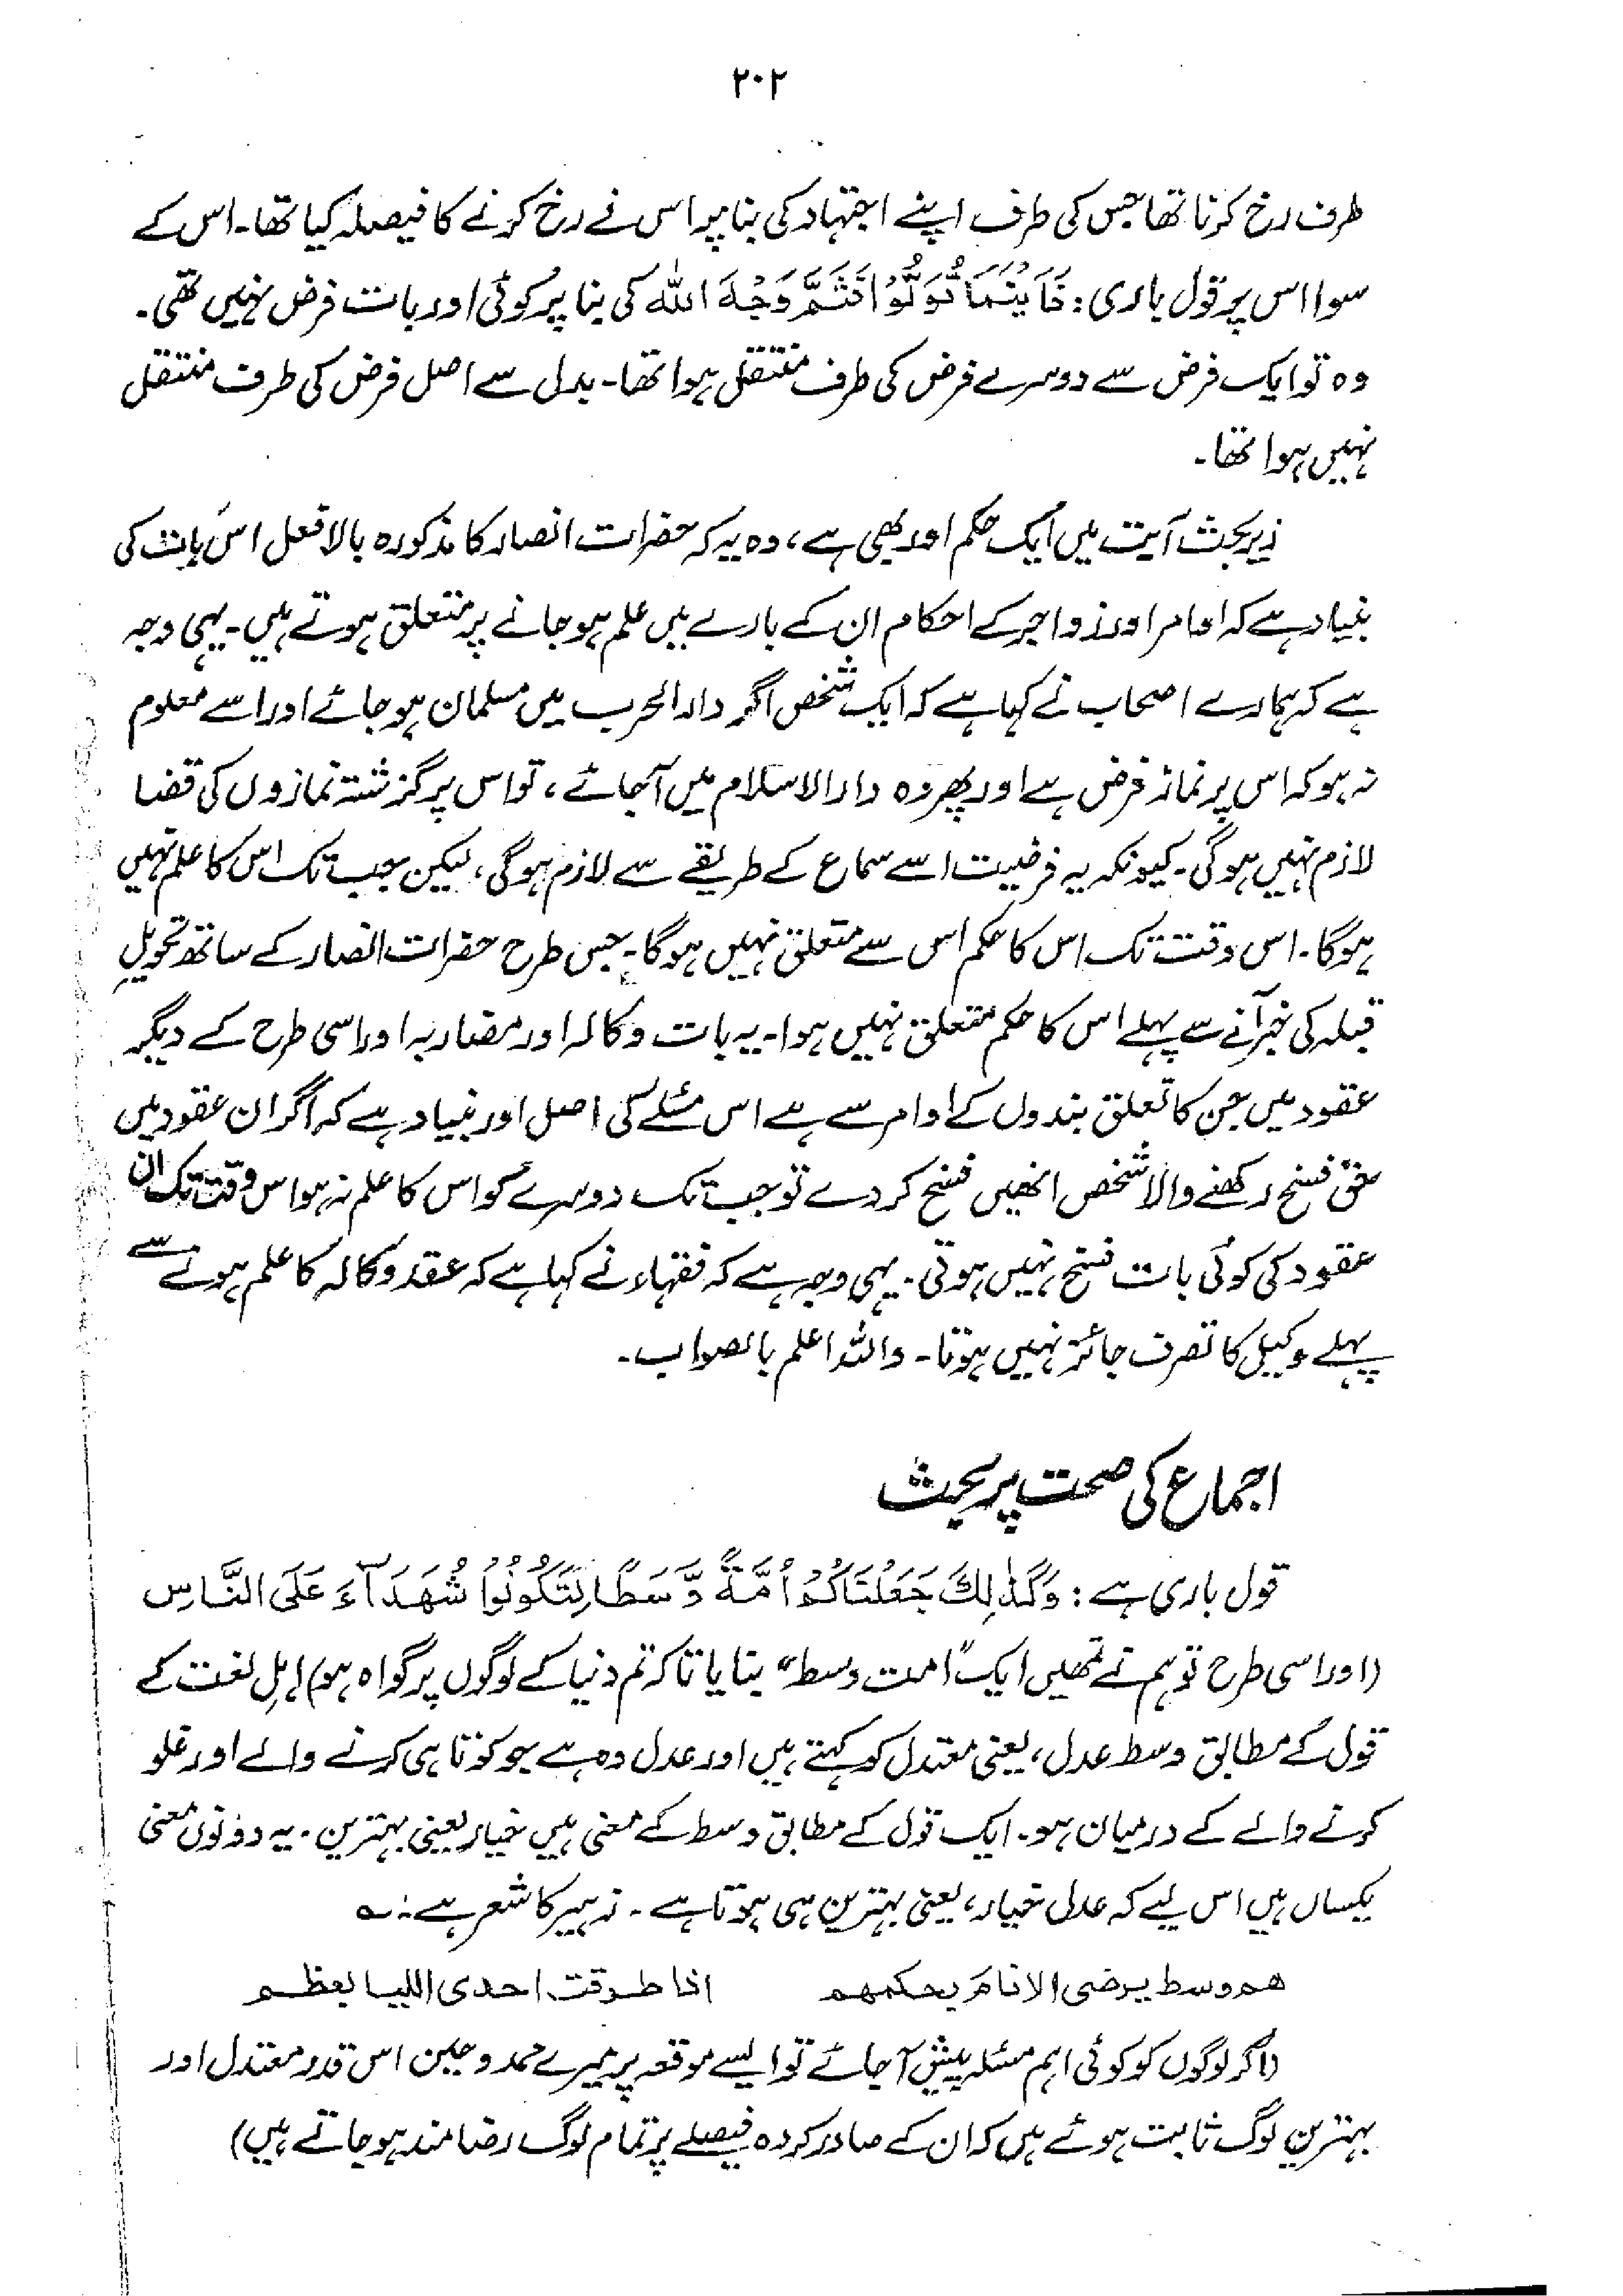 ۲۰۲
طرف رخ کرنا تھا جس کی طرف اپنے اجتہاد کی بنا پر اس نے رخ کرنے کا فیصلہ کیا تھا۔ اس کے
سوا اس پر قول باری: فَأَيْنَمَا تُوَلُّوْا فَثَمَّ وَجْهُ اللّٰه کی بنا پر کوئی اور بات فرض نہیں تھی۔
وہ تو ایک فرض سے دوسرے فرض کی طرف منتقل ہوا تھا۔ بدل سے اصل فرض کی طرف منتقل
نہیں ہوا تھا۔
زیر بحث آیت میں ایک حکم اور بھی ہے، وہ یہ کہ حضرات انصار کا مذکورہ بالا فعل اس بات کی
بنیاد ہے کہ اوامر اور زواجر کے احکام ان کے بارے میں علم ہو جانے پر متعلق ہوتے ہیں۔ یہی وجہ
ہے کہ ہمارے اصحاب نے کہا ہے کہ ایک شخص اگر دارالحرب میں مسلمان ہو جائے اور اسے معلوم
نہ ہو کہ اس پر نماز فرض ہے اور پھر وہ دارالاسلام میں آجائے، تو اس پر گزشتہ نمازوں کی قضا
لازم نہیں ہوگی۔ کیونکہ یہ فرضیت اسے سماع کے طریقے سے لازم ہوگی، لیکن جب تک اس کا علم نہیں
ہوگا۔ اس وقت تک اس کا حکم اس سے متعلق نہیں ہوگا۔ جس طرح حضرات انصار کے ساتھ تحویلِ
قبلہ کی خبر آنے سے پہلے اس کا حکم متعلق نہیں ہوا۔ یہ بات وکالہ اور مضاربہ اور اسی طرح کے دیگر
عقود میں جن کا تعلق بندوں کے اوامر سے ہے اس مسئلے کی اصل اور بنیاد ہے کہ اگر ان عقود میں
حق فسخ رکھنے والا شخص انھیں فسخ کر دے تو جب تک دوسرے کو اس کا علم نہ ہو اس وقت تک ان
عقود کی کوئی بات فسخ نہیں ہوتی۔ یہی وجہ ہے کہ فقہاء نے کہا ہے کہ عقد وکالہ کا علم ہونے سے
پہلے وکیل کا تصرف جائز نہیں ہوتا۔ واللہ اعلم بالصواب۔
اجماع کی صحت پر بحث
قول باری ہے: وَكَذٰلِكَ جَعَلْنَاكُمْ اُمَّةً وَّسَطًا لِّتَكُوْنُوْا شُهَدَآءَ عَلَى النَّاسِ
(اور اسی طرح تو ہم نے تمھیں ایک "امت وسط" بنایا تاکہ تم دنیا کے لوگوں پر گواہ ہو) اہلِ لغت کے
قول کے مطابق وسط عدل، یعنی معتدل کو کہتے ہیں اور عدل وہ ہے جو کوتاہی کرنے والے اور غلو
کرنے والے کے درمیان ہو۔ ایک قول کے مطابق وسط کے معنی ہیں خیار یعنی بہترین۔ یہ دونوں معنی
یکساں ہیں اس لیے کہ عدل خیار، یعنی بہترین ہی ہوتا ہے۔ زہیر کا شعر ہے:۔ ؎
هم وسط يرضى الانام بحكمهم اذا طرقت احدى الليا بعظم
(اگر لوگوں کو کوئی اہم مسئلہ پیش آجائے تو ایسے موقعہ پر میرے ممدوحین اس قدر معتدل اور
بہترین لوگ ثابت ہوئے ہیں کہ ان کے صادر کردہ فیصلے پر تمام لوگ رضامند ہو جاتے ہیں)